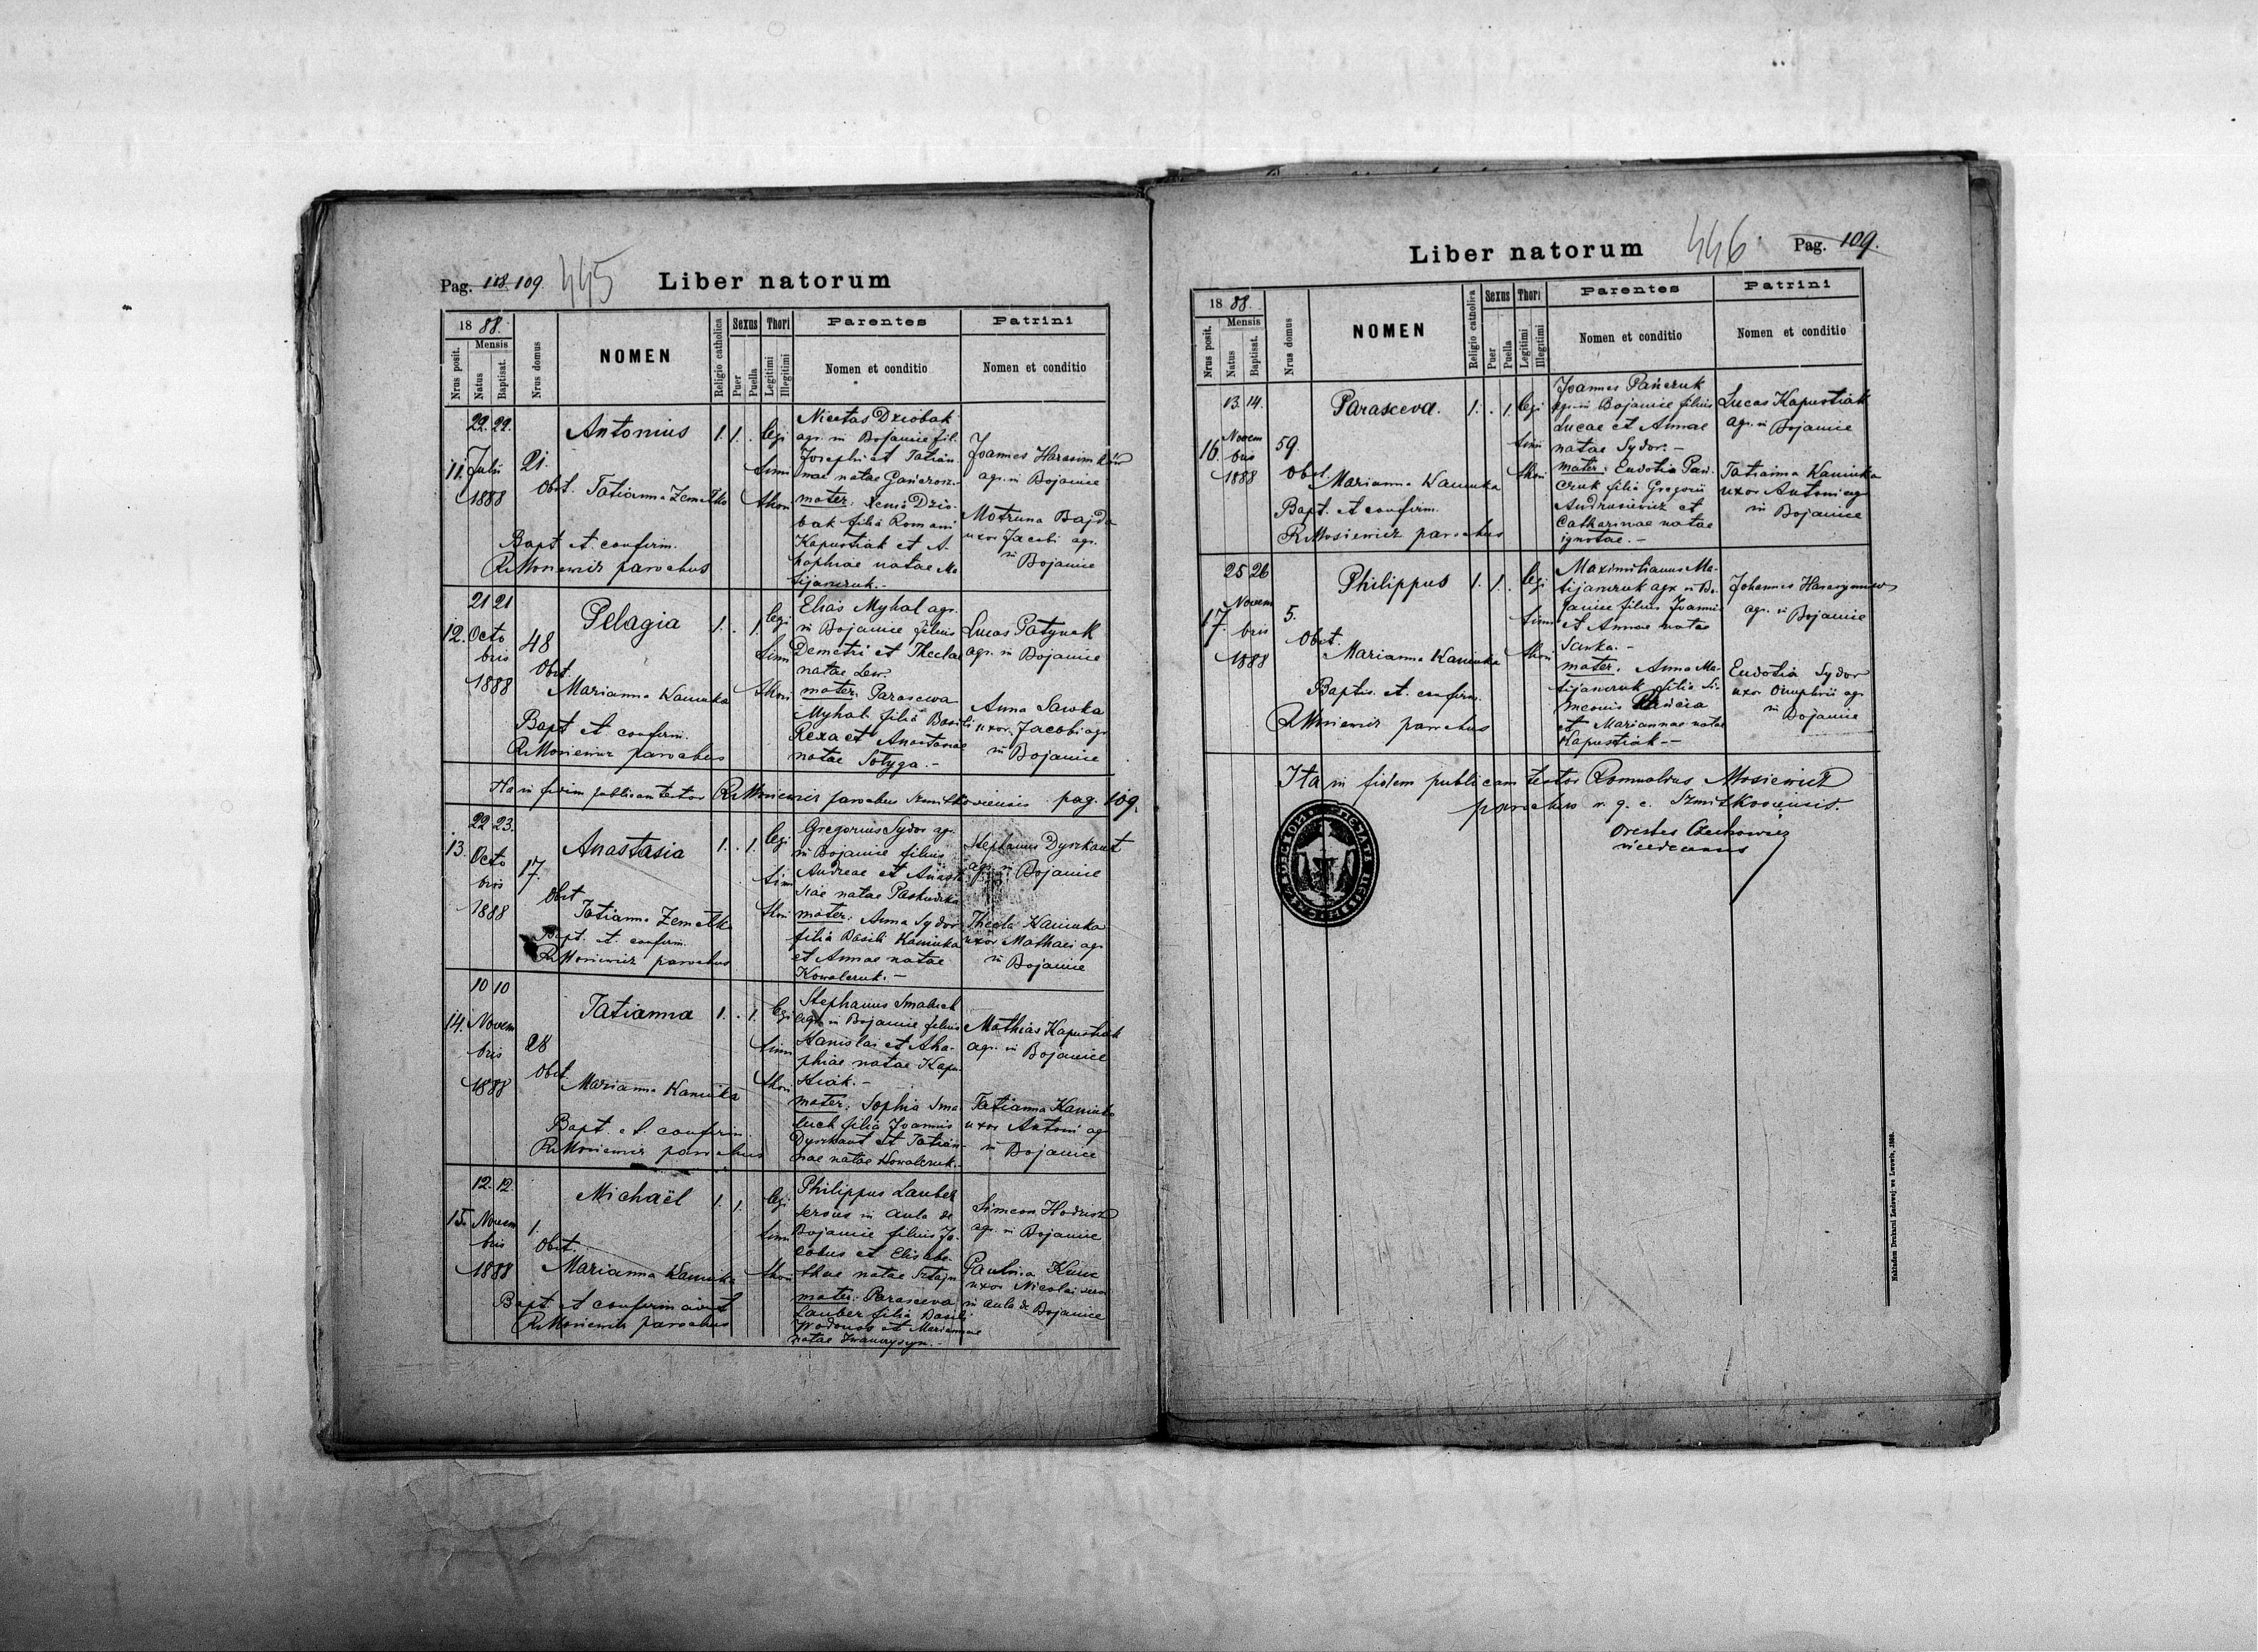 Pag. 118 109 445 Liber natorum
18 88.
Nrus posit.
Mensis
Natus
Baptisat.
Nrus domus
NOMEN
Religio catholica
Sexus
Puer
Puella
Thori
Legitimi
Illegitimi
Parentes
Nomen et conditio
Patrini
Nomen et conditio
22. 22.
11. Julii
1888
21.
Antonius
Obst. Tatianna Zemelko
Bapt. et confirm.
R. Mosiewicz parochus
1. 1. .
legi
timi
thori
Nicetas Dziobak
agr. in Bojanice fil.
Josephi et Tatian
nae natae Gonczrow.
mater: Xenia Dzio-
bak filia Romani
Kapustiak et A-
haphiae natae Ma
tijaszczuk.-
Joannes Harasim
agr. in Bojanice
Motruna Bajda
uxor Jacobi agr.
in Bojanice
21 21
12. Octo
bris
1888
48
Pelagia
Obst.
Marianna Kaminka
Bapt. et confirm.
R. Mosiewicz parochus
1. . 1.
legi
timi
thori
Elias Myhal agr.
in Bojanice filius
Demetri et Theclae
natae Lew.
mater: Parascewa
Myhal filia Basilii
Rexa et Anastasiae
natae Sotyga.-
Lucas Patynok
agr. in Bojanice
Anna Sawka
uxor Jacobi agr
in Bojanice
Ita in fidem publicam testor R. Mosiewicz parochus Szmitkoviensis pag. 109.
22 23.
13. Octo
bris
1888
17.
Anastasia
Obst
Tatianna Zemelko
Bapt. et confirm.
R. Mosiewicz parochus
1. . 1.
legi
timi
thori
Gregorius Sydor agr.
in Bojanice filius
Andreae et Anasta
siae natae Pastuszka
mater: Anna Sydor
filia Basili Kaminka
et Annae natae
Kowalczuk.-
Stephanus Dyszkant
agr. in Bojanice
Thecla Kaminka
uxor Mathaei agr.
in Bojanice
10 10
14. Novem
bris
1888
28
Tatianna
Obst.
Marianna Kaminka
Bapt. et confirm
R. Mosiewicz parochus
1. . 1.
legi
timi
thori
Stephanus Smaluch
agr. in Bojanice filius
Stanislai et Aha-
phiae natae Kapu
stiak.-
mater: Sophia Sma
luch filia Joannis
Dyszkant et Tatian-
nae natae Kowalczuk.-
Mathias Kapustiak
agr. in Bojanice
Tatianna Kaminka
uxor Antoni agr
in Bojanice
12. 12.
15. Novem
bris
1888
1.
Michaël
Obst.
Marianna Kaminka
Bapt. et confirmavit
R. Mosiewicz parochus
1. 1.
legi
timi
thori
Philippus Lauber
servus in aula de
Bojanice filius Ja-
cobus et Elisabe
thae natae Sztajn
mater: Parasceva
Lauber filia Basili
Wodonos et Mariannae
natae Iwanczyszyn.-
Simeon
agr. in Bojanice
Paulina
uxor Nicolai
in aula de Bojanice
Liber natorum 446 Pag. 109.
18 88.
Nrus posit.
Mensis
Natus
Baptisat.
Nrus domus
NOMEN
Religio catholica
Sexus
Puer
Puella
Thori
Legitimi
Illegitimi
Parentes
Nomen et conditio
Patrini
Nomen et conditio
13. 14.
16. Novem
bris
1888
59.
Parasceva.
Obst.
Marianna Kaminka
Bapt. et confirm.
R. Mosiewicz parochus
1. . 1.
legi
timi
thori
Joannes Pańczuk
agr. in Bojanice filius
Lucae et Annae
natae Sydor.-
mater: Eudotia Pań-
czuk filia Gregorii
Andrusiewicz et
Catharinae natae
ignotae.-
Lucas Kapustiak
agr. in Bojanice
Tatianna Kaminka
uxor Antoni agr
in Bojanice
25 26
17. Novem
bris
1888
5.
Philippus
Obst.
Marianna Kaminka
Baptis. et. confirm.
R. Mosiewicz parochus
1. 1. .
legi
timi
thori
Maximilianus Ma-
tijaszczuk agr. in Bo-
janice filius Joannis
et Annae natae
Sawka.-
mater: Anna Ma-
tijaszczuk filia Si-
meonis
et Mariannae natae
Kapustiak.-
Johannes
agr. in Bojanice
Eudotia Sydor
uxor Onuphrii agr
in Bojanice
Ita in fidem publicam testor Romualdus Mosiewicz
parochus r. g. c. Szmitkoviensis.
Orestes Czechowicz
vicedecanus
Nakładem Drukarni Ludowej we Lwowie, 1880.